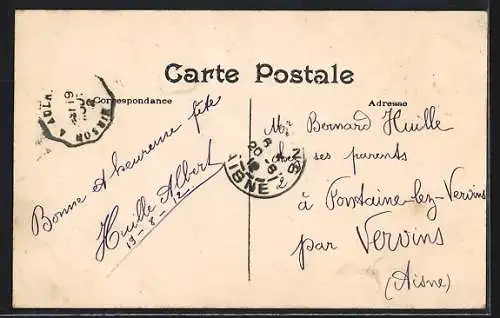 Carte Postale
Correspondance
Adresse
Bonne et heureuse fête
Huille Albert
19-8-12
Mr Bernard Huille
chez ses parents
à Fontaine-lez-Vervins
par Vervins
(Aisne)
HIRSON A
AISNE